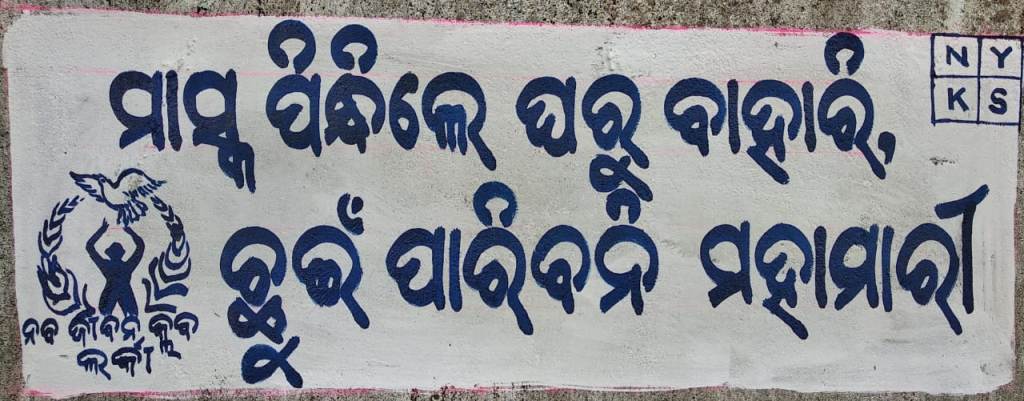 ମାସ୍କ ପିନ୍ଧିଲେ ଘରୁ ବାହାରି,
ଛୁଇଁ ପାରିବନି ମହାମାରୀ
NY
KS
ନବ ଜୀବନ କ୍ଲବ
ଲର୍କୀ